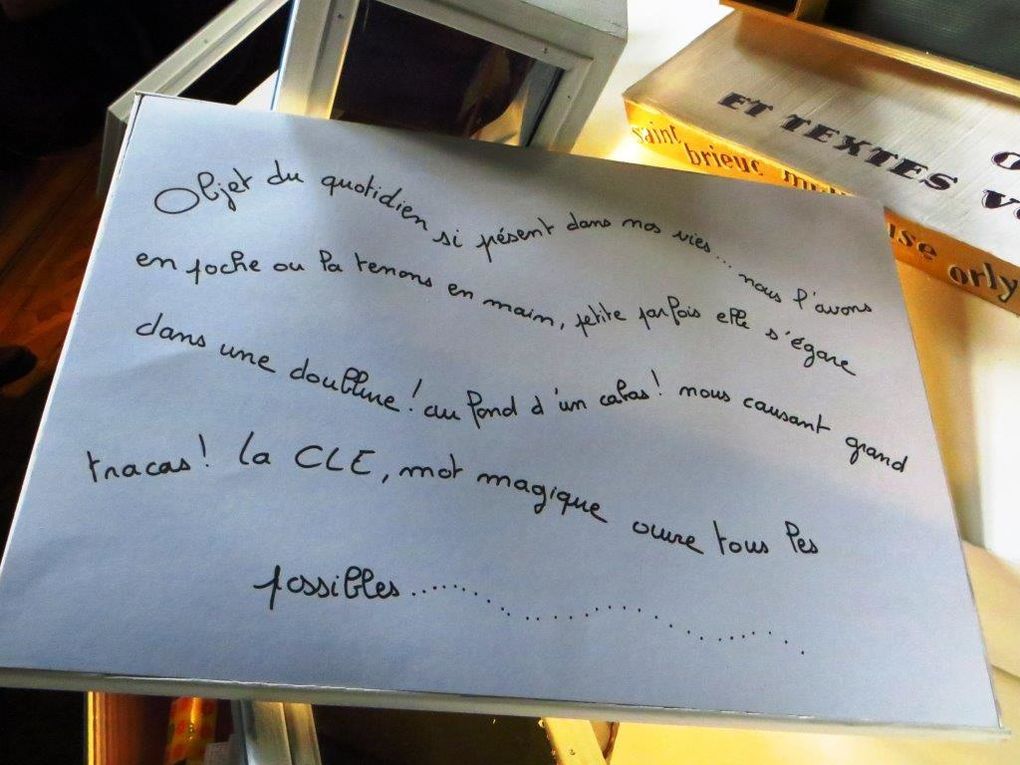 Objet du quotidien si pésent dans nos vies... nous l'avons
en poche ou la tenons en main, petite parfois elle s'égare
dans une doublure! au fond d'un cabas! nous causant grand
tracas! la CLE, mot magique ouvre tous les
possibles..............................
ET TEXTES
saint brieuc
orly